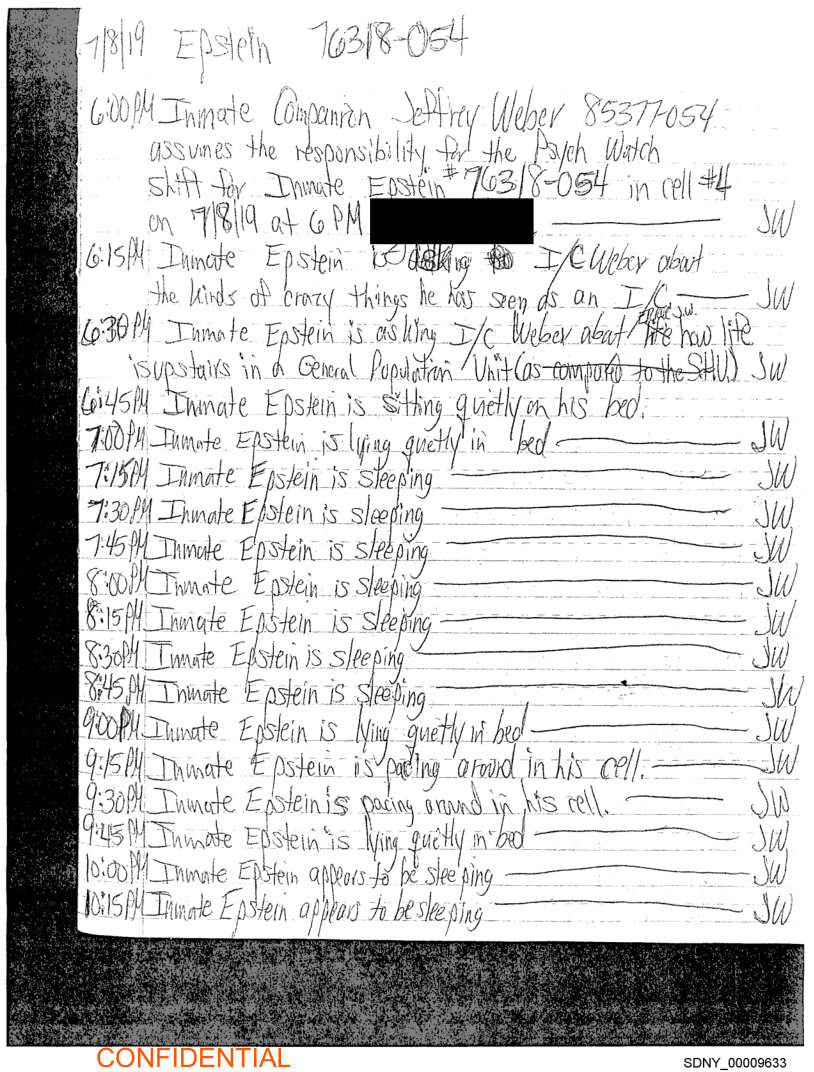 7/8/19 Epstein 76318-054
6:00PM Inmate Companion Jeffrey Weber 85377-054
assumes the responsibility for the Psych Watch
shift for Inmate Epstein #76318-054 in cell #4
on 7/8/19 at 6 PM JW
6:15PM Inmate Epstein is asking I/C Weber about
the kinds of crazy things he has seen as an I/C JW
Error J.W.
6:30 PM Inmate Epstein is asking I/C Weber about how life
is upstairs in a General Population Unit (as compared to the SHU) JW
6:45PM Inmate Epstein is sitting quetly on his bed.
7:00PM Inmate Epstein is lying quetly in bed JW
7:15PM Inmate Epstein is sleeping JW
7:30PM Inmate Epstein is sleeping JW
7:45PM Inmate Epstein is sleeping JW
8:00PM Inmate Epstein is sleeping JW
8:15PM Inmate Epstein is sleeping JW
8:30PM Inmate Epstein is sleeping JW
8:45PM Inmate Epstein is sleeping JW
9:00PM Inmate Epstein is lying quetly in bed JW
9:15PM Inmate Epstein is pacing around in his cell. JW
9:30PM Inmate Epstein is pacing around in his cell. JW
9:45PM Inmate Epstein is lying quetly in bed JW
10:00PM Inmate Epstein appears to be sleeping JW
10:15PM Inmate Epstein appears to be sleeping JW
CONFIDENTIAL
SDNY_00009633